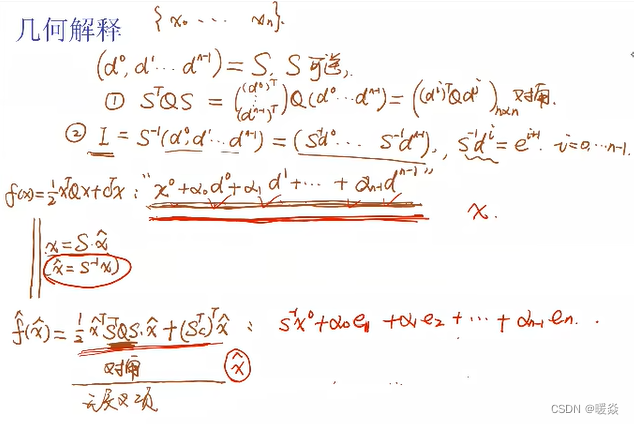 几何解释 {x₀ ⋯ xₙ}.
(d⁰, d¹ ⋯ dⁿ⁻¹) = S, S 可逆,
① SᵀQS = ((d⁰)ᵀ ⋮ (dⁿ⁻¹)ᵀ) Q (d⁰ ⋯ dⁿ⁻¹) = ((dⁱ)ᵀQdʲ)ₙₓₙ 对角.
② I = S⁻¹(d⁰, d¹ ⋯ dⁿ⁻¹) = (S⁻¹d⁰ ⋯ S⁻¹dⁿ⁻¹), S⁻¹dⁱ = eⁱ⁺¹. i=0,⋯n-1.
f(x)=½xᵀQx+cᵀx : "x⁰+α₀d⁰+α₁d¹+⋯+αₙ₋₁dⁿ⁻¹" x.
x=S·x̂
(x̂=S⁻¹x)
f̂(x̂)=½x̂ᵀSᵀQS·x̂+(Sᵀc)ᵀx̂ : S⁻¹x⁰+α₀e₁+α₁e₂+⋯+αₙ₋₁eₙ.
对角 x̂
无交叉项
CSDN @暖焱